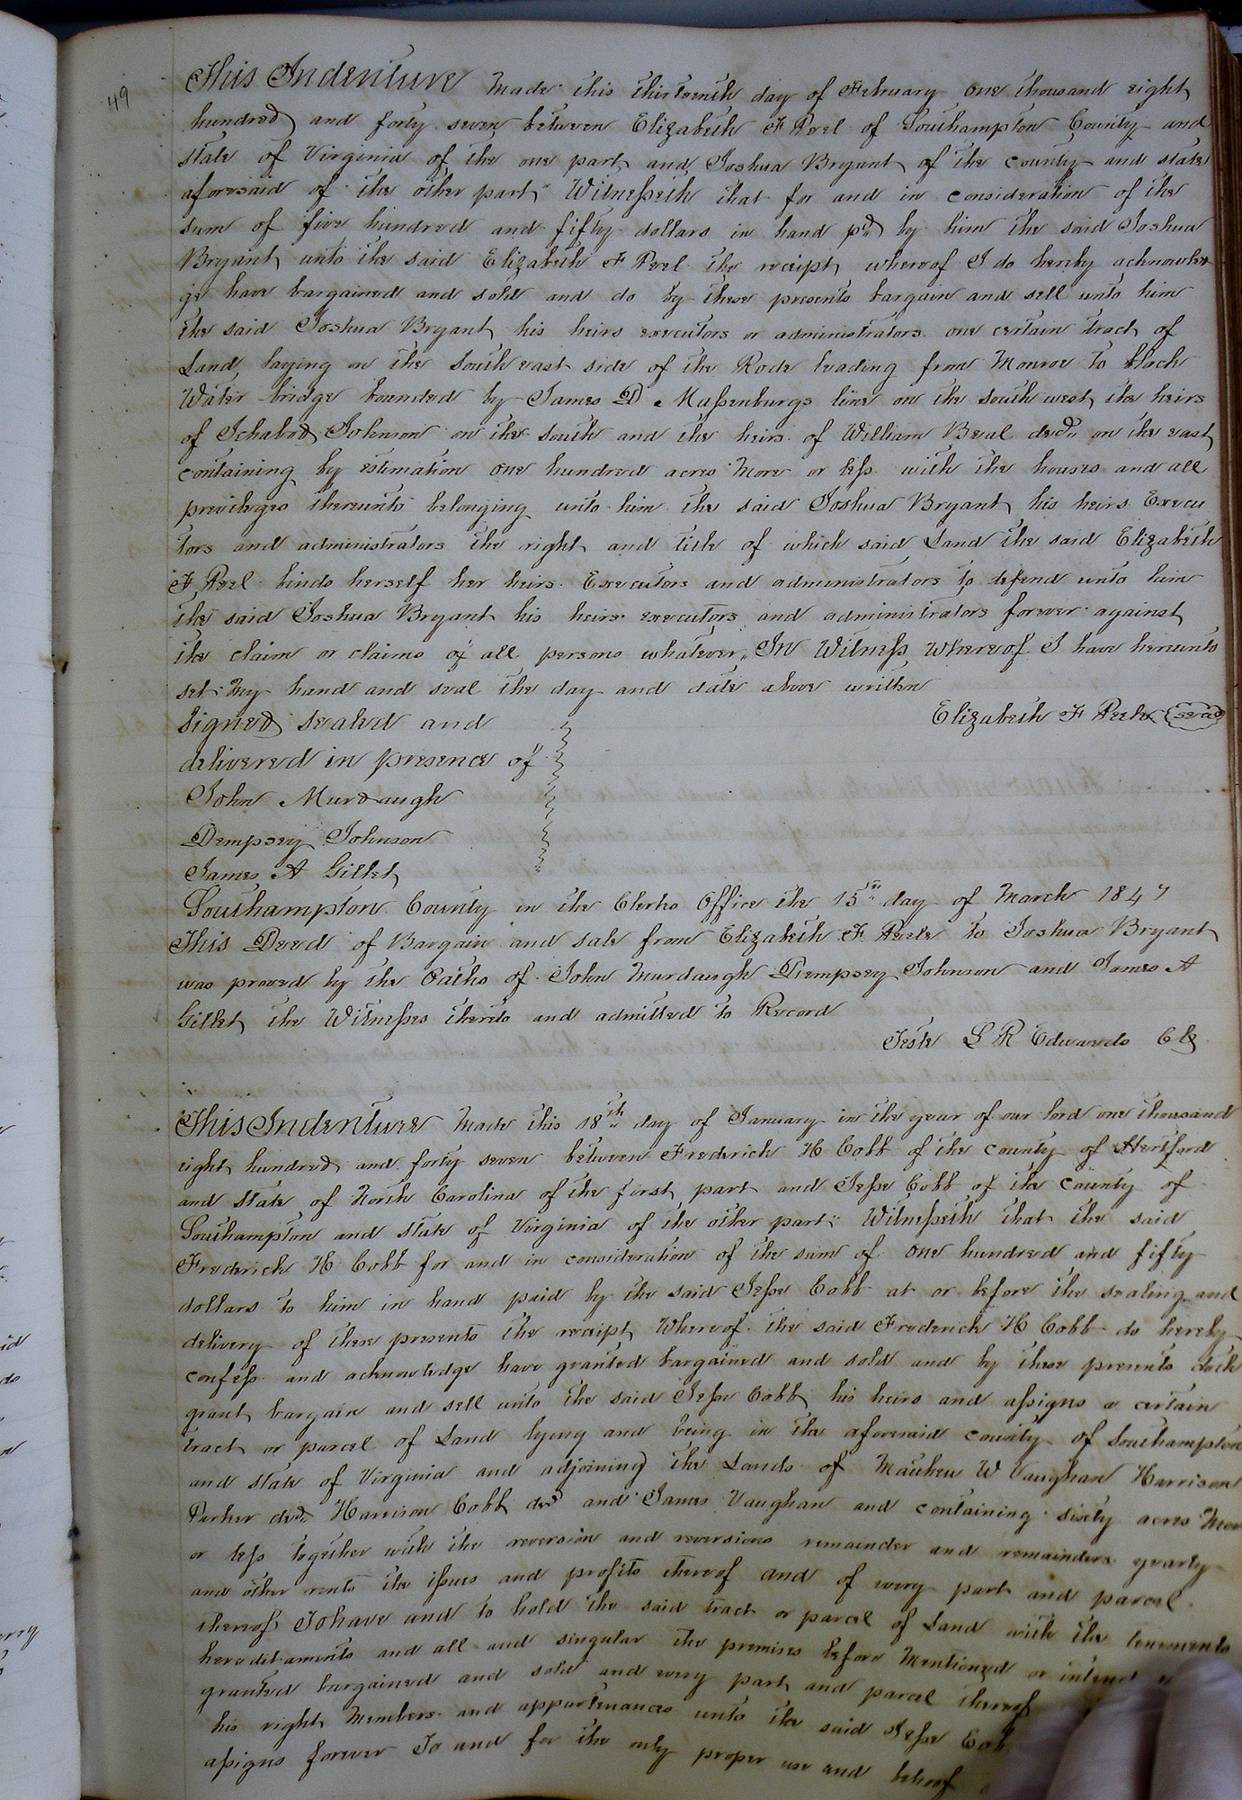 49
This Indenture Made this thirteenth day of February one thousand eight
hundred and forty seven between Elizabeth F Peel of Southampton County and
state of Virginia of the one part and Joshua Bryant of the county and state
aforesaid of the other part Witnesseth that for and in consideration of the
sum of five hundred and fifty dollars in hand pd by him the said Joshua
Bryant unto the said Elizabeth F Peel the receipt whereof I do hereby acknowled
ge have bargained and sold and do by these presents bargain and sell unto him
the said Joshua Bryant his heirs executors or administrators one certain tract of
Land, laying on the South east side of the Rode leading from Monroe to black
Water bridge bounded by James D Massenburgs line on the south west, the heirs
of Ichabod Johnson on the South and the heirs of William Beal decd on the east
containing by estimation one hundred acres More or less with the houses and all
previleges thereunto belonging unto him the said Joshua Bryant his heirs Execu
tors and administrators the right and title of which said Land the said Elizabeth
F Peel binds herself her heirs Executors and administrators to defend unto him
the said Joshua Bryant his heirs executors and administrators forever against
the claim or claims of all persons whatever, In Witness Whereof I have hereunto
set My hand and seal the day and date above written
Signed sealed and Elizabeth F Peele seal
delivered in presence of
John Murdaugh
Dempsey Johnson
James A Gillet
Southampton County in the Clerks Office the 15th day of March 1847
This Deed of Bargain and sale from Elizabeth F Peele to Joshua Bryant
was proved by the Oaths of John Murdaugh Dempsey Johnson and James A
Gillet the Witnesses thereto and admitted to Record
Teste L R Edwards Clk
This Indenture Made this 18th day of January in the year of our lord one thousand
eight hundred and forty seven between Frederick H Cobb of the county of Hertford
and state of North Carolina of the first part and Jesse Cobb of the county of
Southampton and state of Virginia of the other part: Witnesseth that the said
Frederick H Cobb for and in consideration of the sum of one hundred and fifty
dollars to him in hand paid by the said Jesse Cobb at or before the sealing and
delivery of these presents the receipt Whereof the said Frederick H Cobb do hereby
confess and acknowledge have granted bargained and sold and by these presents doth
grant bargain and sell unto the said Jesse Cobb his heirs and assigns a certain
tract or parcel of Land lying and being in the aforesaid county of Southampton
and state of Virginia and adjoining the Lands of Mathew W Vaughan Harrison
Parker decd Harrison Cobb decd and James Vaughan and containing sixty acres More
or less together with the reversion and reversions remainder and remainders yearly
and other rents the issues and profits thereof and of every part and parcel
thereof To have and to hold the said tract or parcel of Land with the tenements
heredetaments and all and singular the premises before Mentioned or
granted bargained and sold and every part and parcel thereof
his right Members and appurtenances unto the said Jesse
assigns forever To and for the only proper use and behoof